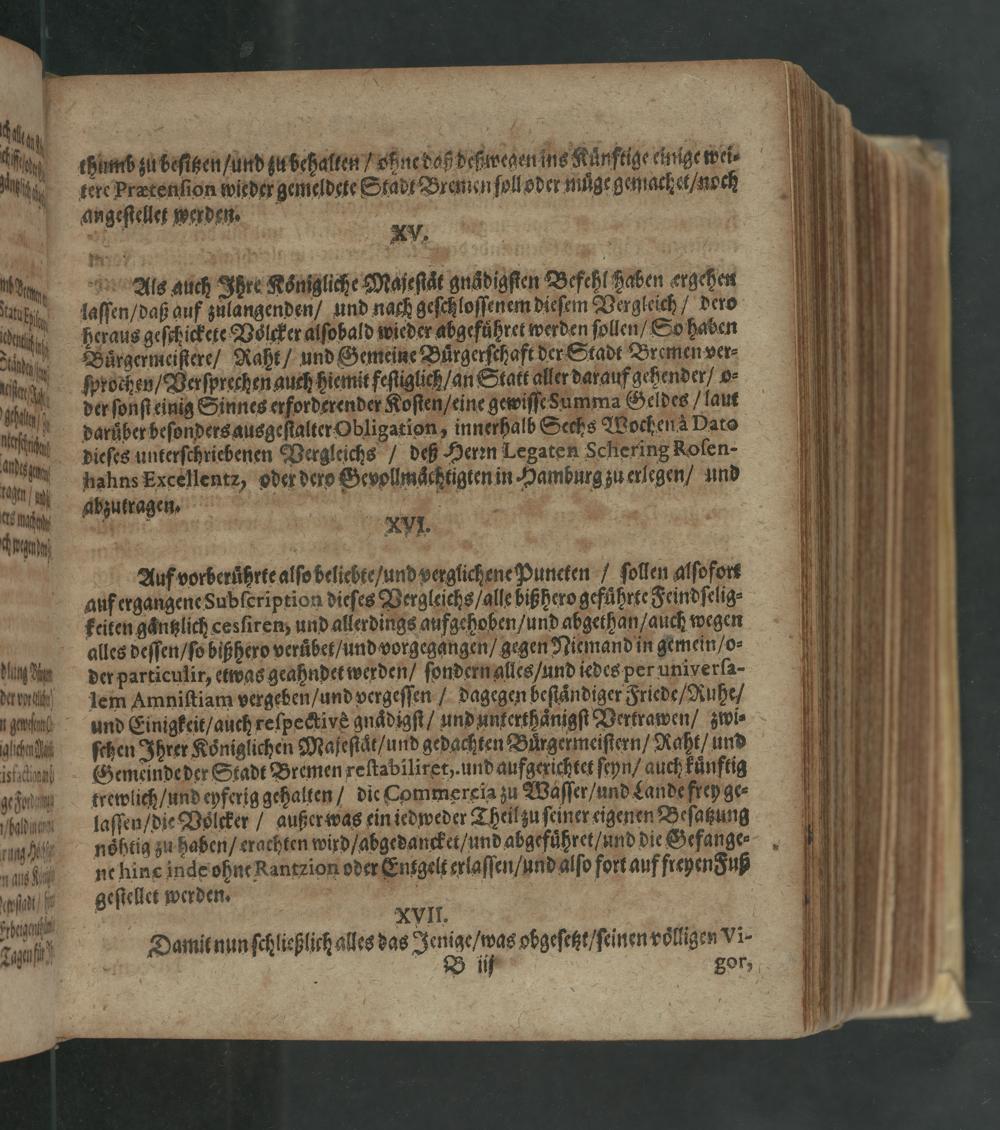 thumb zu besitzen/und zu behalten / ohne daß deßwegen ins Künftige einige wei-
tere Prætension wieder gemeldete Stadt Bremen soll oder müge gemachet/noch
angestellet werden.
XV.
Als auch Ihre Königliche Majestät gnädigsten Befehl haben ergehen
lassen/daß auf zulangenden/ und nach geschlossenem diesem Vergleich / dero
heraus geschickete Völcker alsobald wieder abgeführet werden sollen/ So haben
Bürgermeistere/ Raht/ und Gemeine Bürgerschaft der Stadt Bremen ver-
sprochen/Versprechen auch hiemit festiglich/an Statt aller darauf gehender/ o-
der sonst einig Sinnes erforderender Kosten/eine gewisse Summa Geldes / laut
darüber besonders ausgestalter Obligation, innerhalb Sechs Wochen à Dato
dieses unterschriebenen Vergleichs / deß Herrn Legaten Schering Rosen-
hahns Excellentz, oder dero Gevollmächtigten in Hamburg zu erlegen/ und
abzutragen.
XVI.
Auf vorberührte also beliebte/und verglichene Puncten / sollen alsofort
auf ergangene Subscription dieses Vergleichs/alle bißhero geführte Feindselig-
keiten gäntzlich cessiren, und allerdings aufgehoben/und abgethan/auch wegen
alles dessen/so bißhero verübet/und vorgegangen/ gegen Niemand in gemein/o-
der particulir, etwas geahndet werden/ sondern alles/und iedes per universa-
lem Amnistiam vergeben/und vergessen / dagegen beständiger Friede/Ruhe/
und Einigkeit/auch respectivè gnädigst/ und unterthänigst Vertrawen/ zwi-
schen Ihrer Königlichen Majestät/und gedachten Bürgermeistern/ Raht/ und
Gemeinde der Stadt Bremen restabiliret, und aufgerichtet seyn/ auch künftig
trewlich/und eyferig gehalten / die Commercia zu Wasser/und Lande frey ge-
lassen/die Völcker / außer was ein iedweder Theil zu seiner eigenen Besatzung
nöhtig zu haben/ erachten wird/abgedancket/und abgeführet/und die Gefange-
ne hinc inde ohne Rantzion oder Entgelt erlassen/und also fort auf freyen Fuß
gestellet werden.
XVII.
Damit nun schließlich alles das Jenige/was obgesetzt/seinen völligen Vi-
B iij gor,